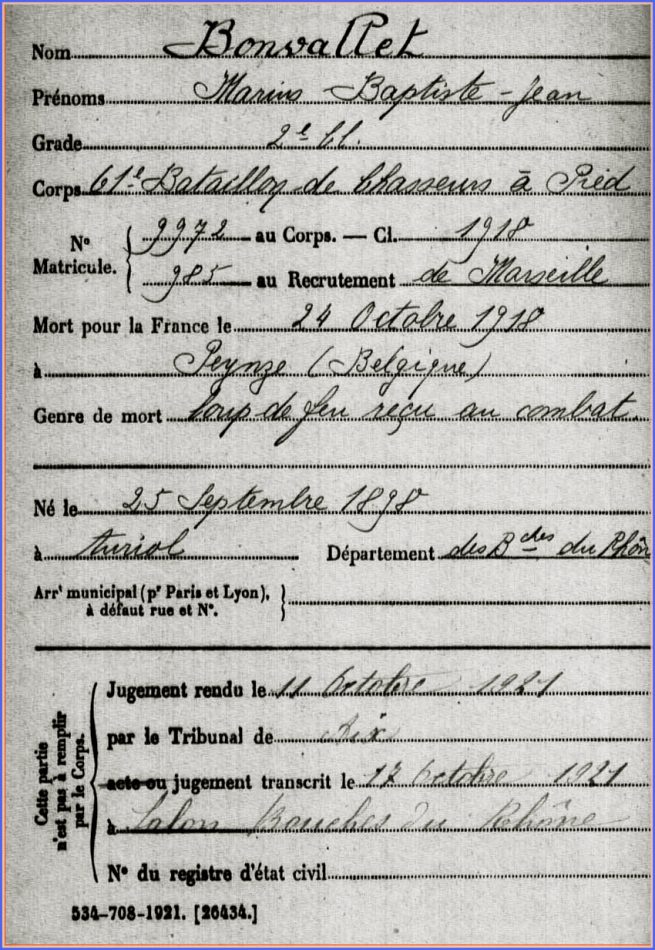 Nom Bonvallet
Prénoms Marius Baptiste-Jean
Grade 2e Cl.
Corps 61e Bataillon de Chasseurs à Pied
No Matricule. { 9972 au Corps. — Cl. 1918
985 au Recrutement de Marseille
Mort pour la France le 24 Octobre 1918
à Peynze (Belgique)
Genre de mort Coup de feu reçu au combat.
Né le 25 Septembre 1898
à Auriol Département des Bches du Rhôn
Arrt municipal (pr Paris et Lyon), à défaut rue et No. }
Cette partie n'est pas à remplir par le Corps.
Jugement rendu le 11 Octobre 1921
par le Tribunal de Aix
acte ou jugement transcrit le 17 Octobre 1921
à Salon Bouches du Rhône
No du registre d'état civil
534-708-1921. [26434.]